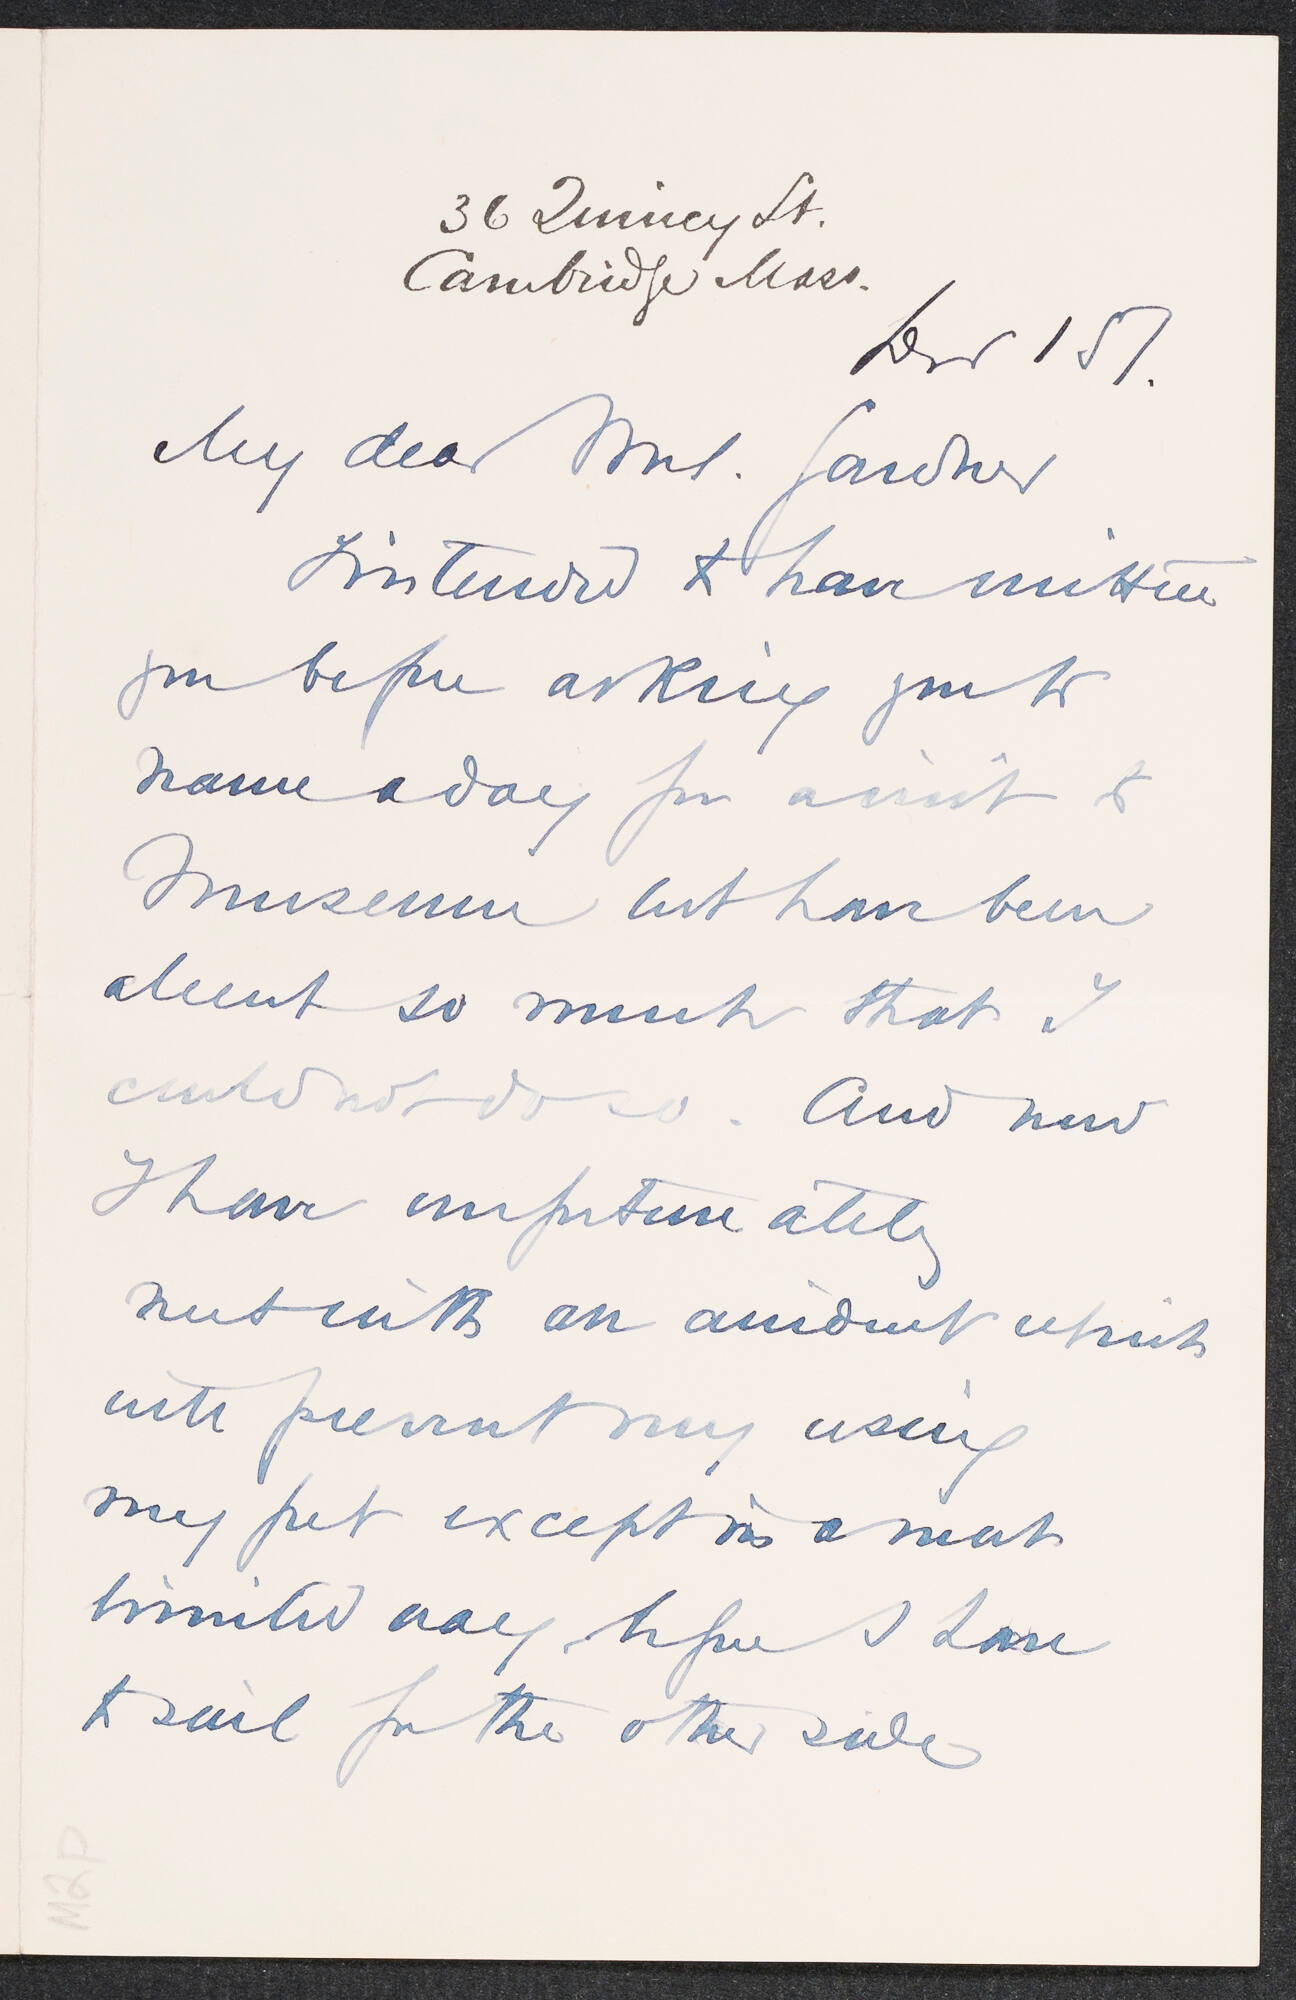 36 Quincy St.
Cambridge Mass.
Dec 1st.
My dear Mrs. Gardner
I intended to have written
you before asking you to
name a day for a visit to
Museum but have been
absent so much that I
could not do so. And now
I have unfortunately
met with an accident which
will prevent my using
my feet except in a most
limited way before I have
to sail for the other side
M2P